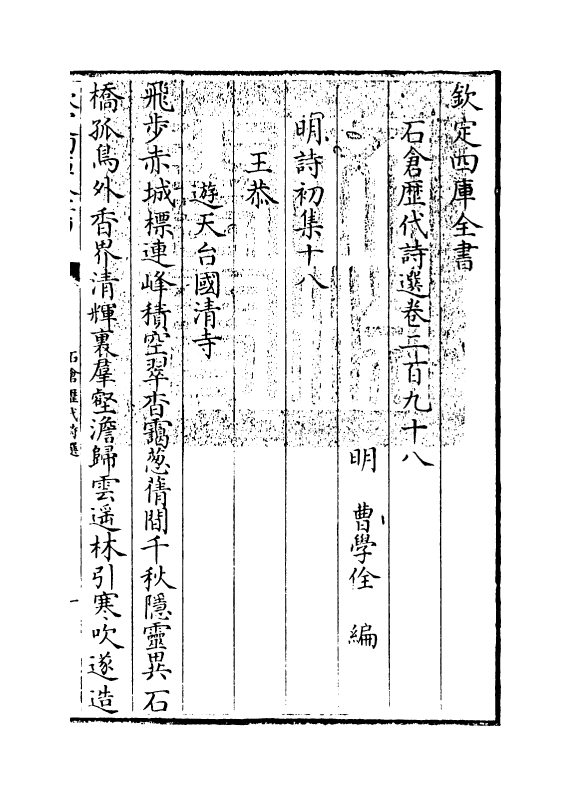 欽定四庫全書
石倉歷代詩選卷二百九十八
明 曹學佺 編
明詩初集十八
王恭
遊天台國清寺
飛步赤城標連峰積空翠杳靄葱蒨間千秋隱靈異石
橋孤鳥外香界清輝裏羣壑澹歸雲遥林引寒吹遂造
石倉歷代詩選
一